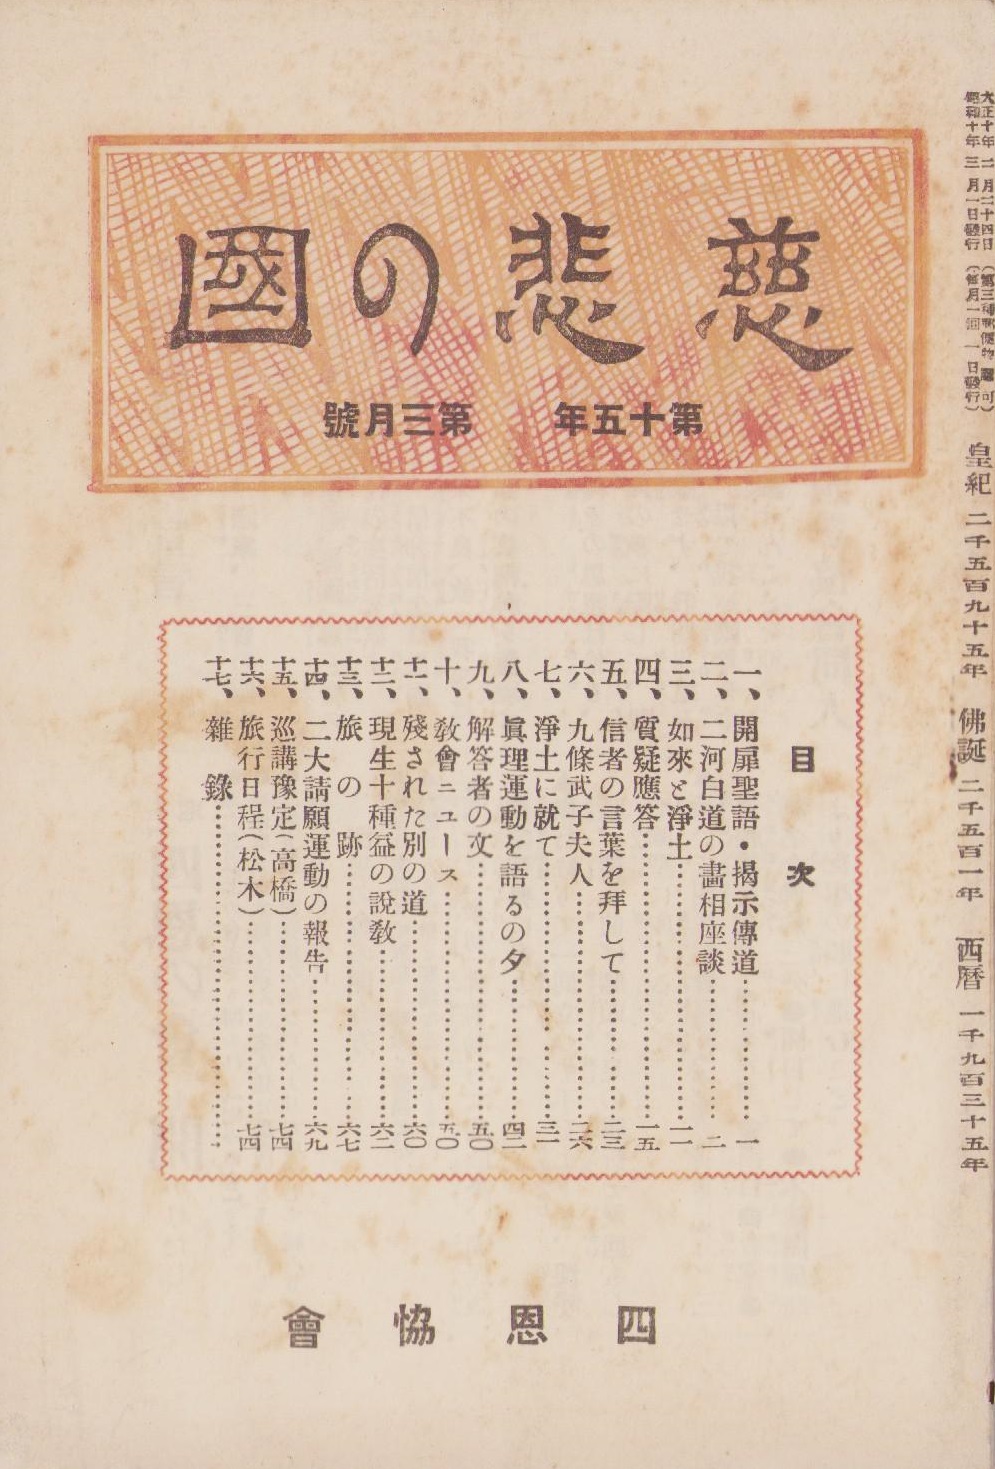 大正十年二月二十四日（第三種郵便物認可）
昭和十年三月一日發行（每月一回一日發行）
皇紀 二千五百九十五年 佛誕 二千五百一年 西曆 一千九百三十五年
慈悲の國
第十五年 第三月號
目次
一、開扉聖語・揭示傳道……一
二、二河白道の畵相座談……二
三、如來と淨土……一一
四、質疑應答……一五
五、信者の言葉を拜して……二三
六、九條武子夫人……二六
七、淨土に就て……三一
八、眞理運動を語るの夕……四二
九、解答者の文……五〇
十、敎會ニユース……五〇
十一、殘された別の道……六〇
十二、現生十種益の說敎……六二
十三、旅の跡……六七
十四、二大請願運動の報告……六九
十五、巡講豫定（高橋）……七四
十六、旅行日程（松木）……七四
十七、雜錄……
四恩協會